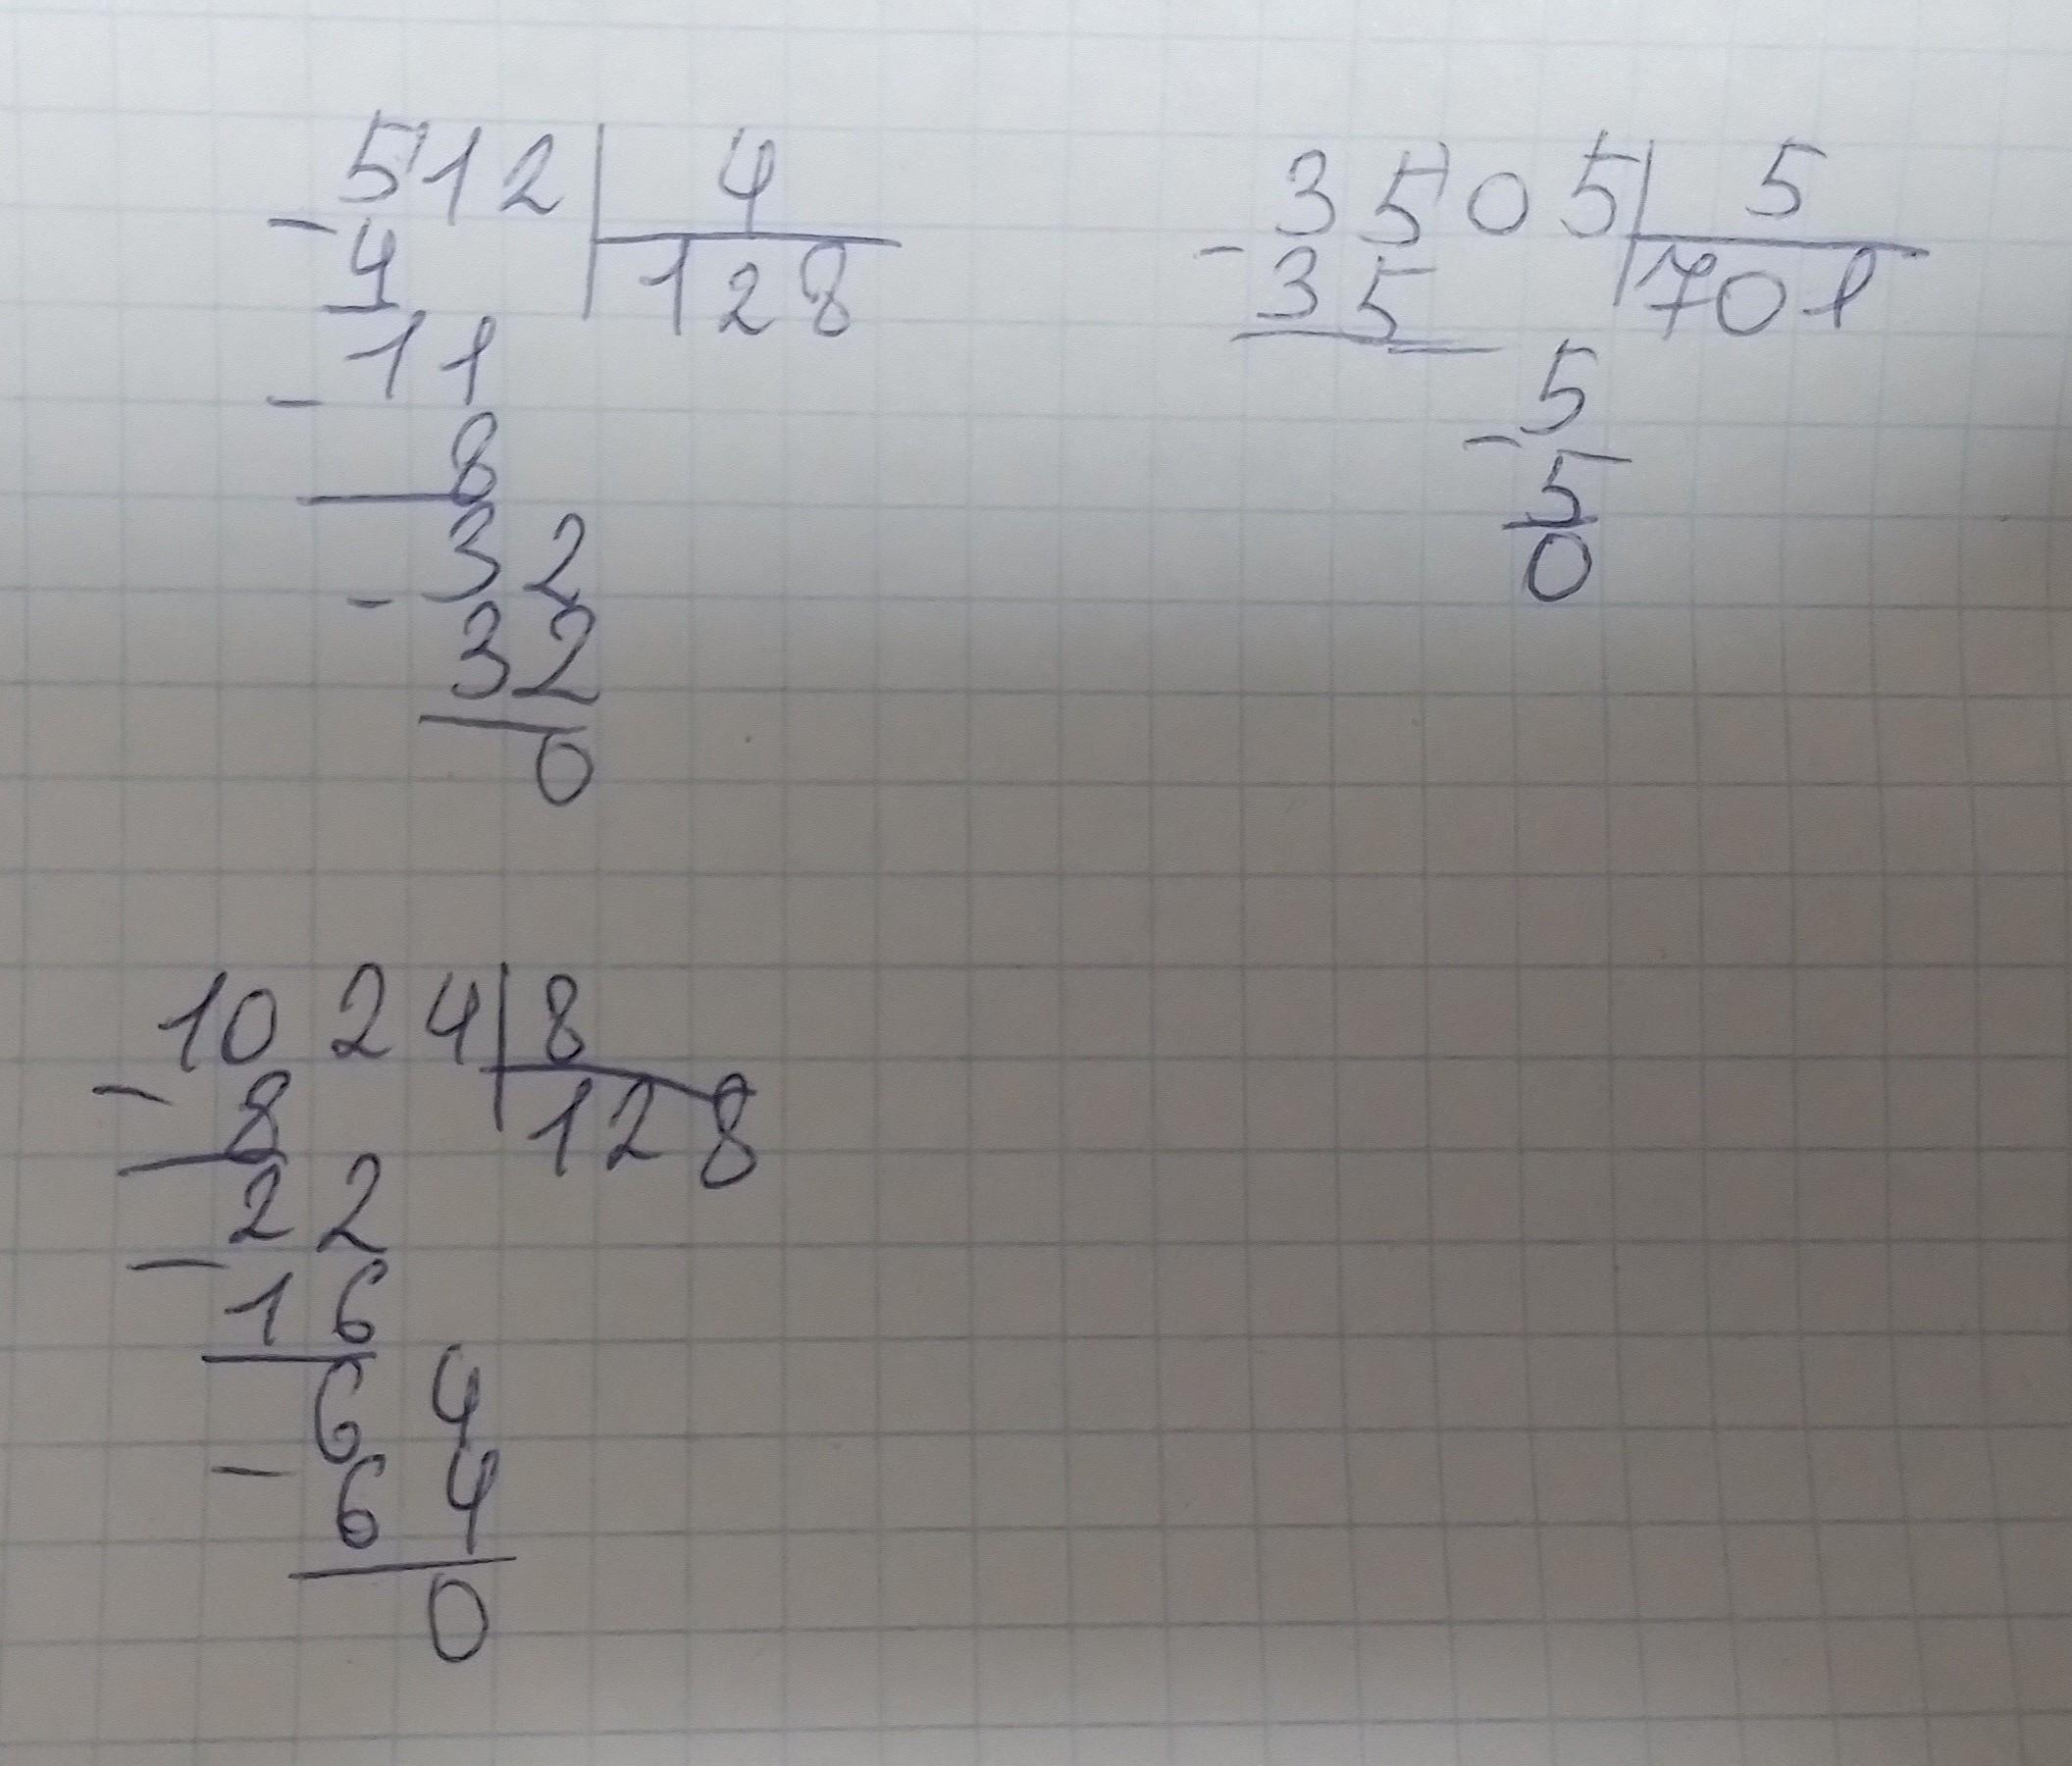 512 | 4
- 4
128
11
- 8
32
- 32
0
3505 | 5
- 35
701
5
- 5
0
1024 | 8
- 8
128
22
- 16
64
- 64
0